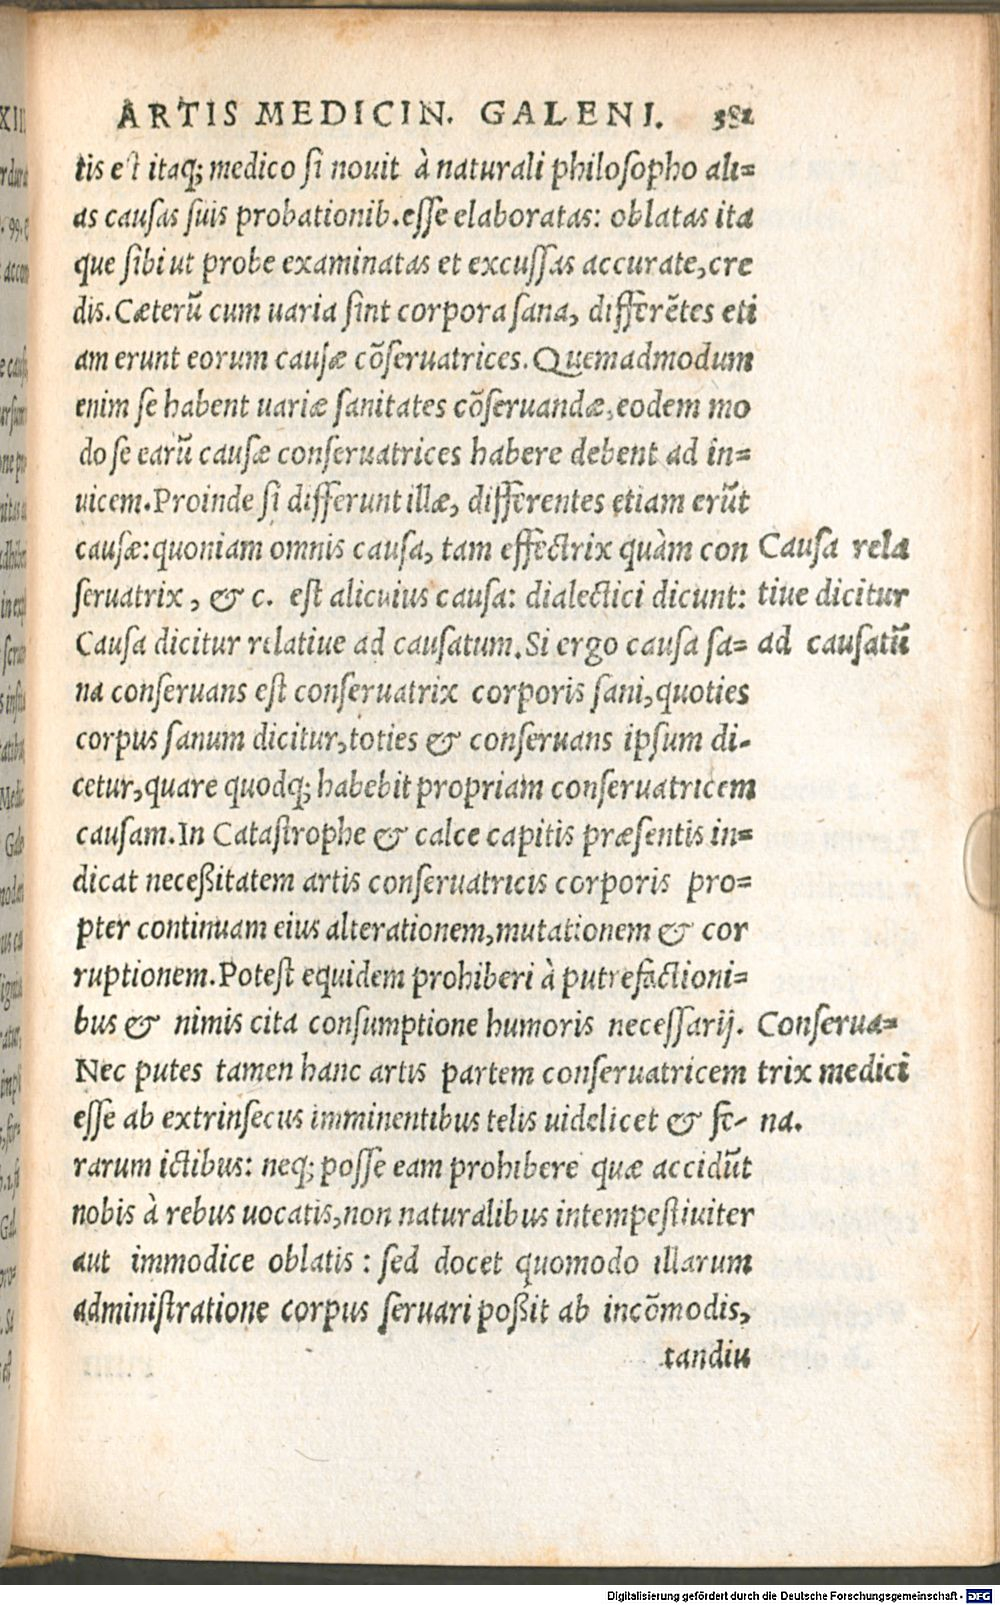 ARTIS MEDICIN. GALENI. 381
tis est itaq; medico si nouit à naturali philosopho ali=
as causas suis probationib. esse elaboratas: oblatas ita
que sibi ut probe examinatas et excussas accurate, cre
dis. Cæterũ cum uaria sint corpora sana, differẽtes eti
am erunt eorum causæ cõseruatrices. Quemadmodum
enim se habent uariæ sanitates cõseruandæ, eodem mo
do se earũ causæ conseruatrices habere debent ad in=
uicem. Proinde si differunt illæ, differentes etiam erũt
causæ: quoniam omnis causa, tam effectrix quàm con
seruatrix, & c. est alicuius causa: dialectici dicunt:
Causa dicitur relatiue ad causatum. Si ergo causa sa=
na conseruans est conseruatrix corporis sani, quoties
corpus sanum dicitur, toties & conseruans ipsum di-
cetur, quare quodq; habebit propriam conseruatricem
causam. In Catastrophe & calce capitis præsentis in=
dicat neceßitatem artis conseruatricis corporis pro=
pter continuam eius alterationem, mutationem & cor
ruptionem. Potest equidem prohiberi à putrefactioni=
bus & nimis cita consumptione humoris necessarij.
Nec putes tamen hanc artis partem conseruatricem
esse ab extrinsecus imminentibus telis uidelicet & fe-
rarum ictibus: neq; posse eam prohibere quæ accidũt
nobis à rebus uocatis, non naturalibus intempestiuiter
aut immodice oblatis: sed docet quomodo illarum
administratione corpus seruari poßit ab incõmodis,
tandiu
Causa rela
tiue dicitur
ad causatũ
Conserua=
trix medici
na.
Digitalisierung gefördert durch die Deutsche Forschungsgemeinschaft - DFG